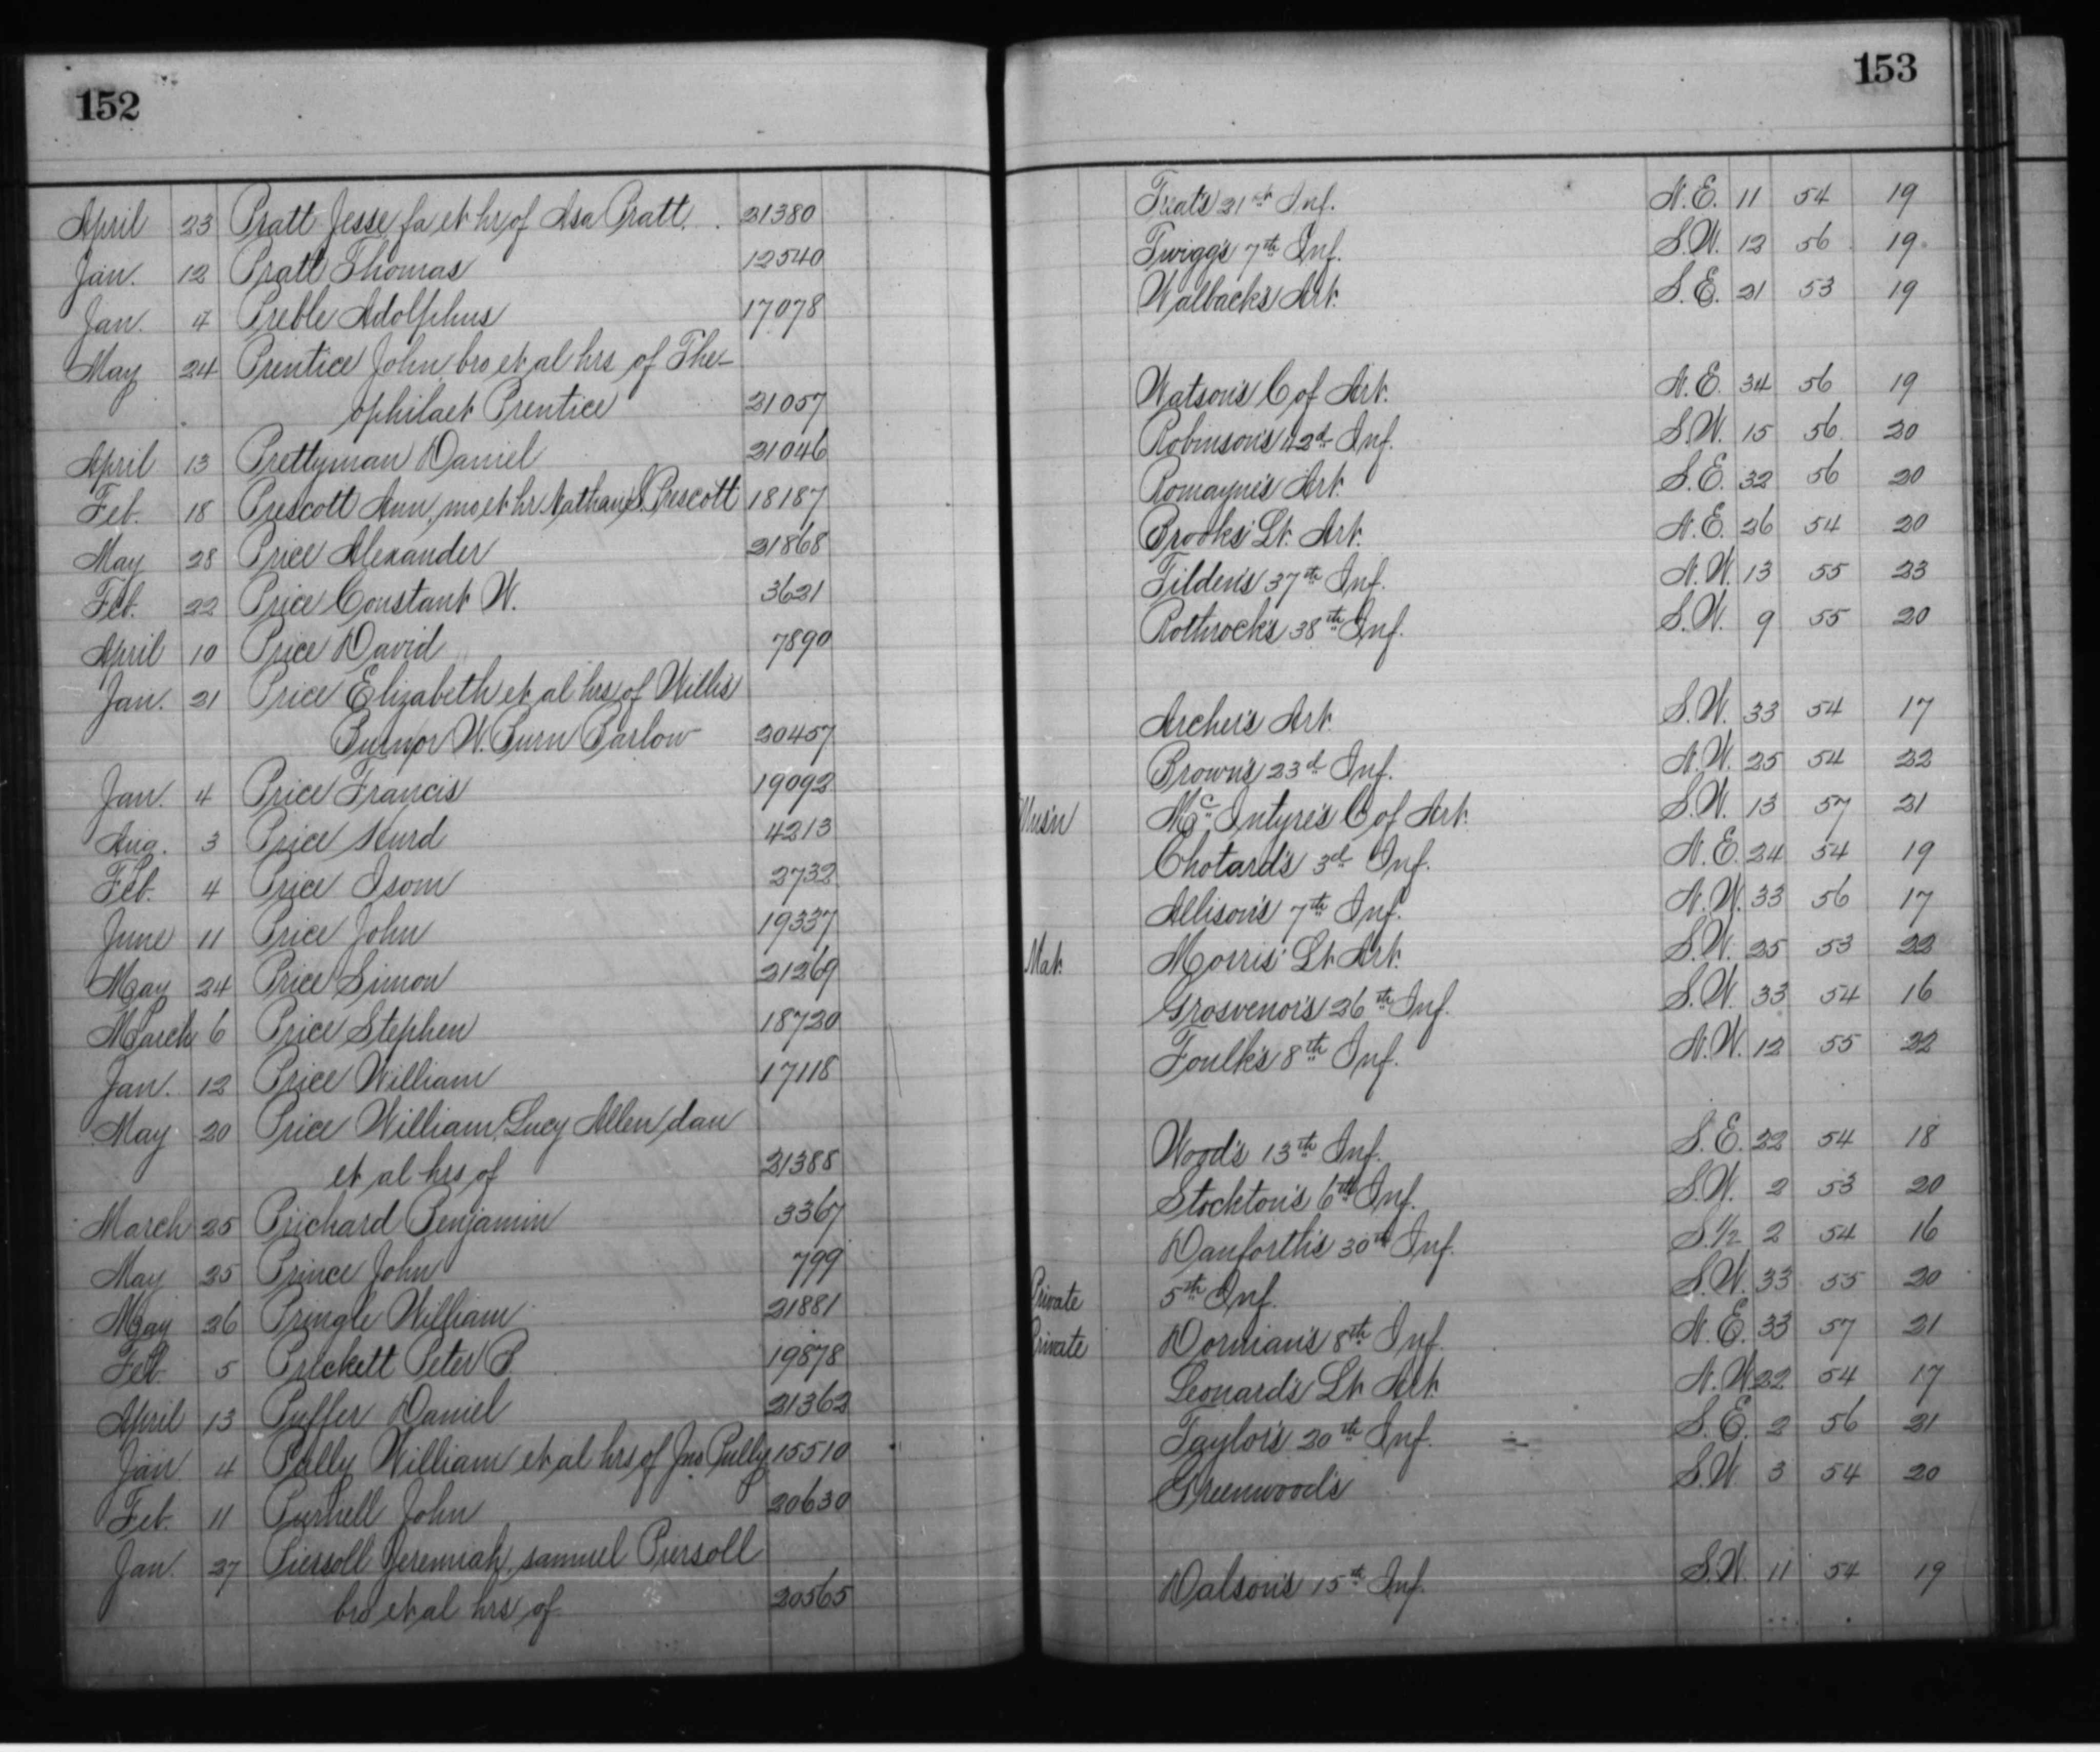 152
April 23 Pratt Jesse, fa et hr of Asa Pratt. 21380
Jan. 12 Pratt Thomas 12540
Jan. 4 Preble Adolphus 17078
May 24 Prentice John, bro et al hrs of The-
ophilaet Prentice 21057
April 13 Prettyman Daniel 21046
Feb. 18 Prescott Ann, mo et hr Nathan S. Prescott 18187
May 28 Price Alexander 21868
Feb. 22 Price Constant W. 3621
April 10 Price David 7890
Jan. 21 Price Elizabeth et al hrs of Willis
W. Burn Barlow 20457
Jan. 4 Price Francis 19092
Aug. 3 Price Hurd 4213
Feb. 4 Price Isom 2732
June 11 Price John 19337
May 24 Price Simon 21269
March 6 Price Stephen 18720
Jan. 12 Price William 17118
May 20 Price William, Lucy Allen dau
et al hrs of 21388
March 25 Prichard Benjamin 3367
May 25 Prince John 799
May 26 Pringle William 21881
Feb. 5 Prickett Peter P. 19878
April 13 Puffer Daniel 21362
Jan 4 Pully William et al hrs of Jno Pully 15510
Feb. 11 Purnell John 20630
Jan. 27 Piersoll Jeremiah, samuel Piersoll
bro et al hrs of 20565
153
Treat's 21st Inf. N.E. 11 54 19
Twiggs 7th Inf. S.W. 12 56 19
Walback's Art. S.E. 21 53 19
Watson's C of Art. N.E. 34 56 19
Robinson's 42d Inf. S.W. 15 56 20
Romayne's Art. S.E. 32 56 20
Brooks' Lt. Art. N.E. 26 54 20
Tilden's 37th Inf. N.W. 13 55 23
Rothrock's 38th Inf. S.W. 9 55 20
Archer's Art. S.W. 33 54 17
Brown's 23d Inf. N.W. 25 54 22
Mus'n McIntyre's C of Art. S.W. 13 57 21
Chotard's 3d Inf. N.E. 24 54 19
Allison's 7th Inf. N.W. 33 56 17
Mat. Morris' Lt Art. S.W. 25 53 22
Grosvenor's 26th Inf. S.W. 33 54 16
Foulk's 8th Inf. N.W. 12 55 22
Wood's 13th Inf. S.E. 22 54 18
Stockton's 6th Inf. S.W. 2 53 20
Danforth's 30th Inf. S.1/2 2 54 16
Private 5th Inf. S.W. 33 55 20
Private Dorman's 8th Inf. N.E. 33 57 21
Leonard's Lt Art. N.W. 22 54 17
Taylor's 20th Inf. S.E. 2 56 21
Greenwood's S.W 3 54 20
Datson's 15th Inf. S.W. 11 54 19